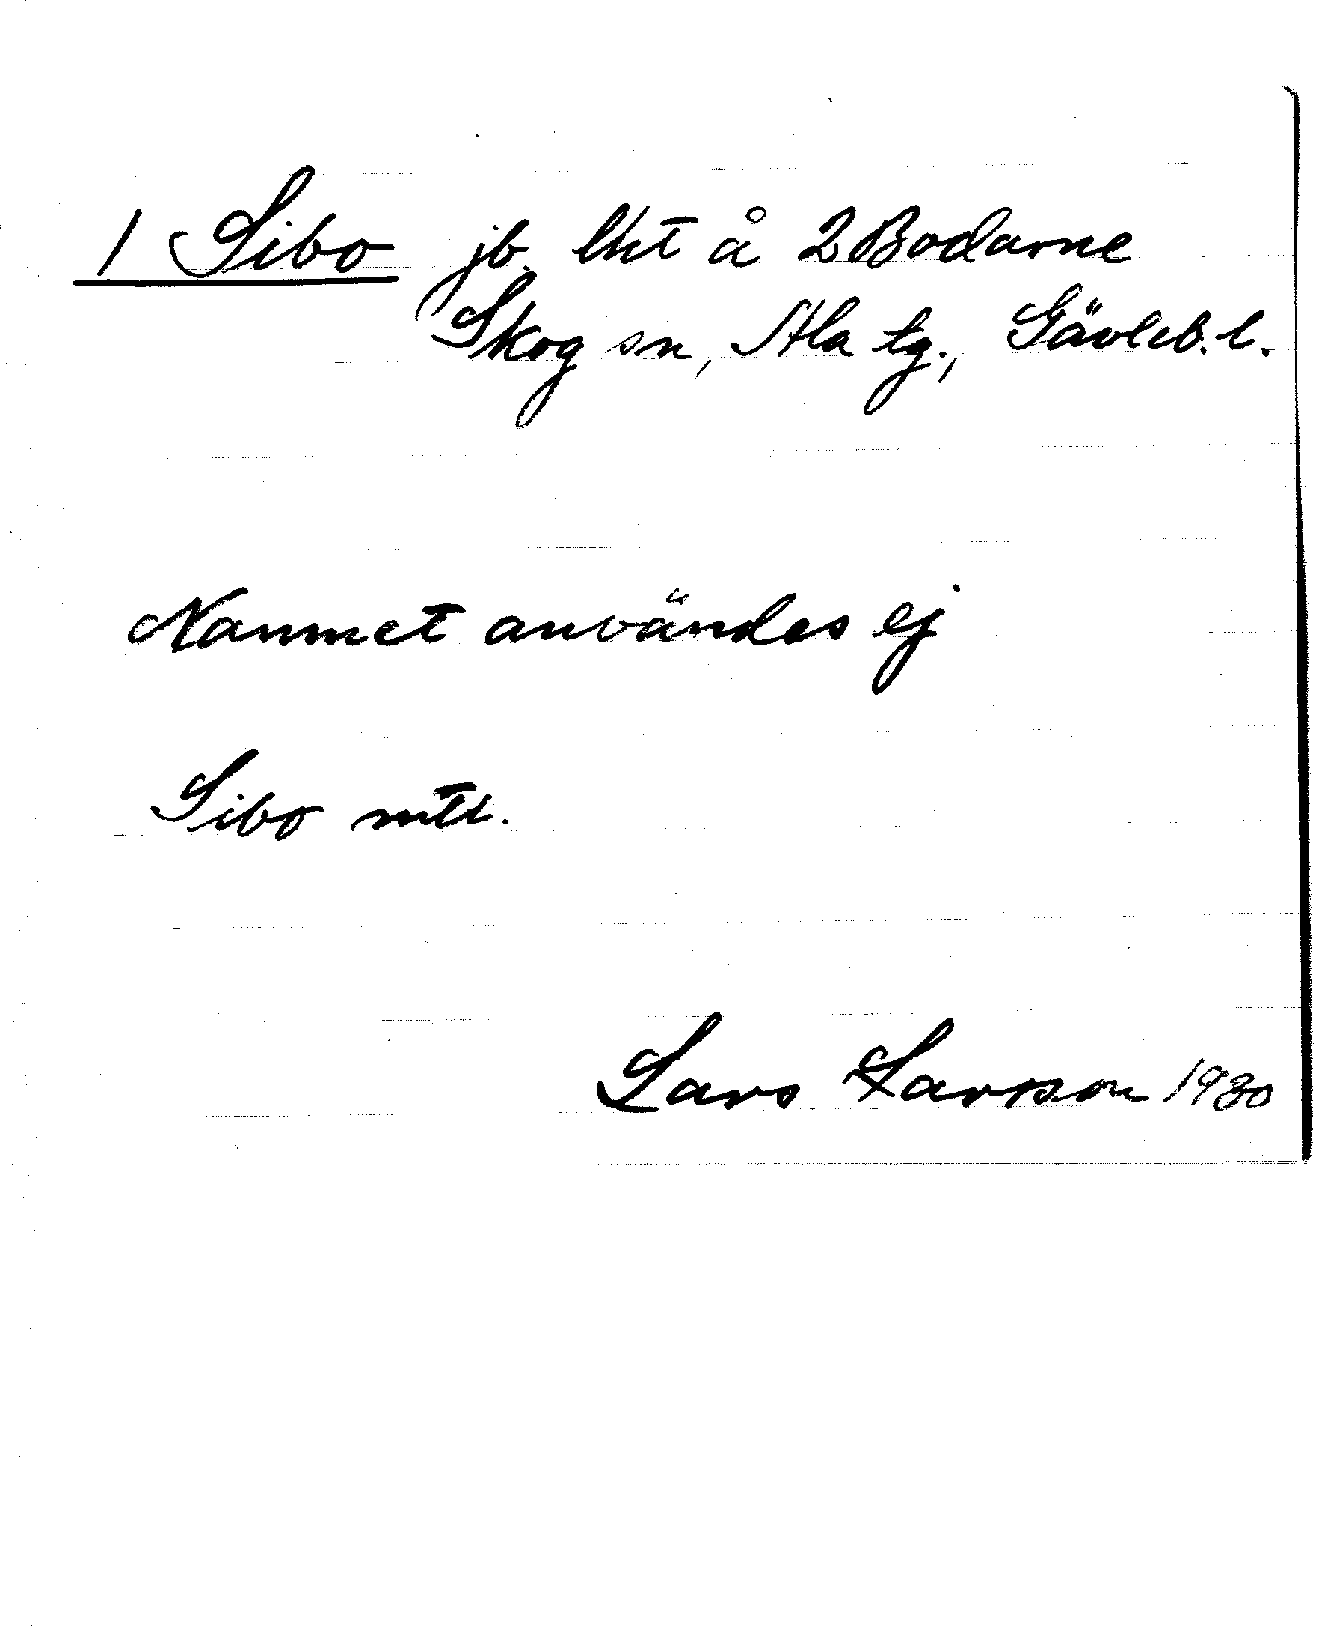 1 Sibo jb. lht å 2 Bodarne
Skog sn, Ala tg., Gävleb. l.
Namnet användes ej
Sibo mtl.
Lars Larsson 1930